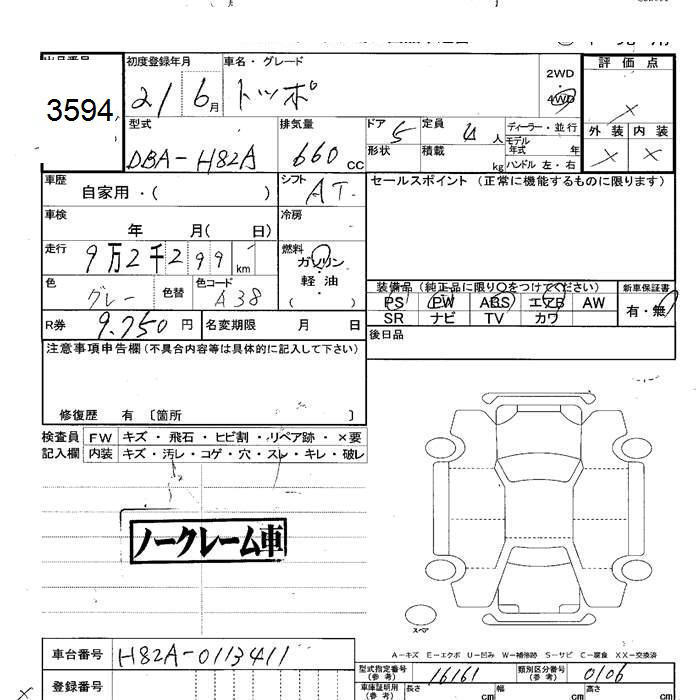 3594
初度登録年月 車名・グレード 2WD 評価点
21 6月 トッポ 4WD ×
型式 排気量 ドア 5 定員 4人 ディーラー・並行 外装 内装
DBA-H82A 660cc 形状 積載 kg モデル年式 年 × ×
ハンドル 左・右
車歴 シフト セールスポイント (正常に機能するものに限ります)
自家用・( ) AT
車検 冷房
年 月( 日)
走行 9万2千299km 燃料 ガソリン
軽・油
( )
色 グレー 色替 色コード A38
装備品 (純正品に限り○をつけてください) 新車保証書
PS PW ABS エアB AW 有・無
SR ナビ TV カワ
R券 9.750円 名変期限 月 日 後日品
注意事項申告欄 (不具合内容等は具体的に記入して下さい)
修復歴 有 〔箇所 〕
検査員 FW キズ・飛石・ヒビ割・リペア跡・×要
記入欄 内装 キズ・汚レ・コゲ・穴・スレ・キレ・破レ
ノークレーム車
スペア
A-キズ E-エクボ U-凹み W-補修跡 S-サビ C-腐食 XX-交換済
車台番号 H82A-0113411
型式指定番号(参考) 16161 類別区分番号(参考) 0106
登録番号
車庫証明用(参考) 長さ cm 幅 cm 高さ cm
×